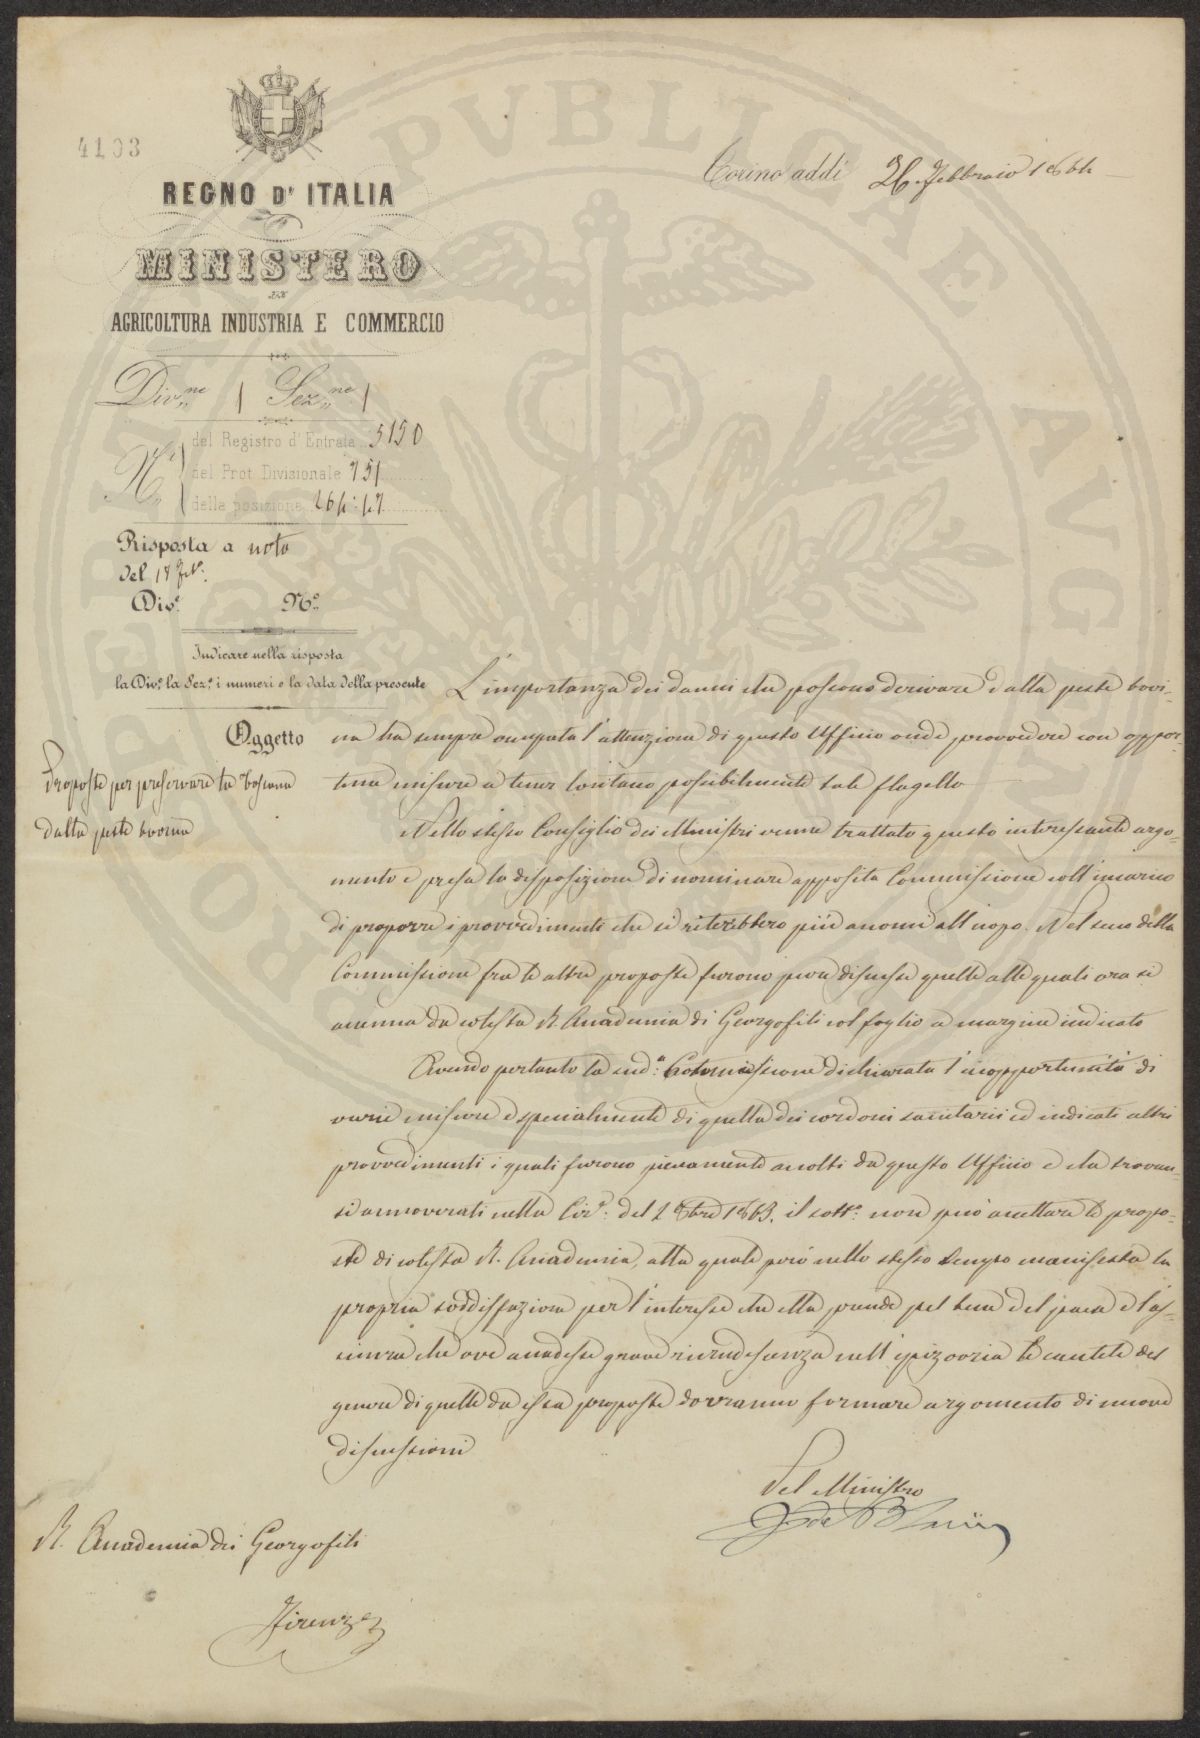 4103
REGNO D' ITALIA
MINISTERO
DI
AGRICOLTURA INDUSTRIA E COMMERCIO
Torino addì 26 Febbraio 1864
Div.ne Sez.ne
N.i
del Registro d'Entrata 5150
del Prot. Divisionale 751
della posizione
Risposta a nota
del 18 Feb.o
Div.e N.o
Indicare nella risposta
la Div.e la Sez.e i numeri e la data della presente
Oggetto
Proposte per preservare la Toscana
dalla peste bovina
L'importanza dei danni che possono derivare dalla peste bovi-
na ha sempre occupata l'attenzione di questo Ufficio onde provvedere con oppor-
tune misure a tener lontano possibilmente tale flagello
Nello stesso Consiglio dei Ministri venne trattato questo interessante argo-
mento e presa la disposizione di nominare apposita Commissione coll'incarico
di proporre i provvedimenti che si riterebbero più acconci all'uopo. Nel seno della
Commissione fra le altre proposte furono pure discusse quelle alle quali ora si
accenna da cotesta R. Accademia di Georgofili col foglio a margine indicato
Avendo pertanto la sud.a Commissione dichiarata l'inopportunità di
varie misure e specialmente di quella dei cordoni sanitarii ed indicati altri
provvedimenti i quali furono pienamente accolti da questo Ufficio e che trovan-
si annoverati nella Circ.e del 2 8bre 1863, il sott.o non può accettare le propo-
ste di cotesta R. Accademia, alla quale però nello stesso tempo manifesta la
propria soddisfazione per l'interesse che ella prende pel bene del paese e l'as-
sicura che ove accadesse grave recrudescenza nell'epizoozia le cautele del
genere di quelle da essa proposte dovranno formare argomento di nuove
discussioni
Pel Ministro
R. Accademia dei Georgofili
Firenze
PVBLICAE AVGEN